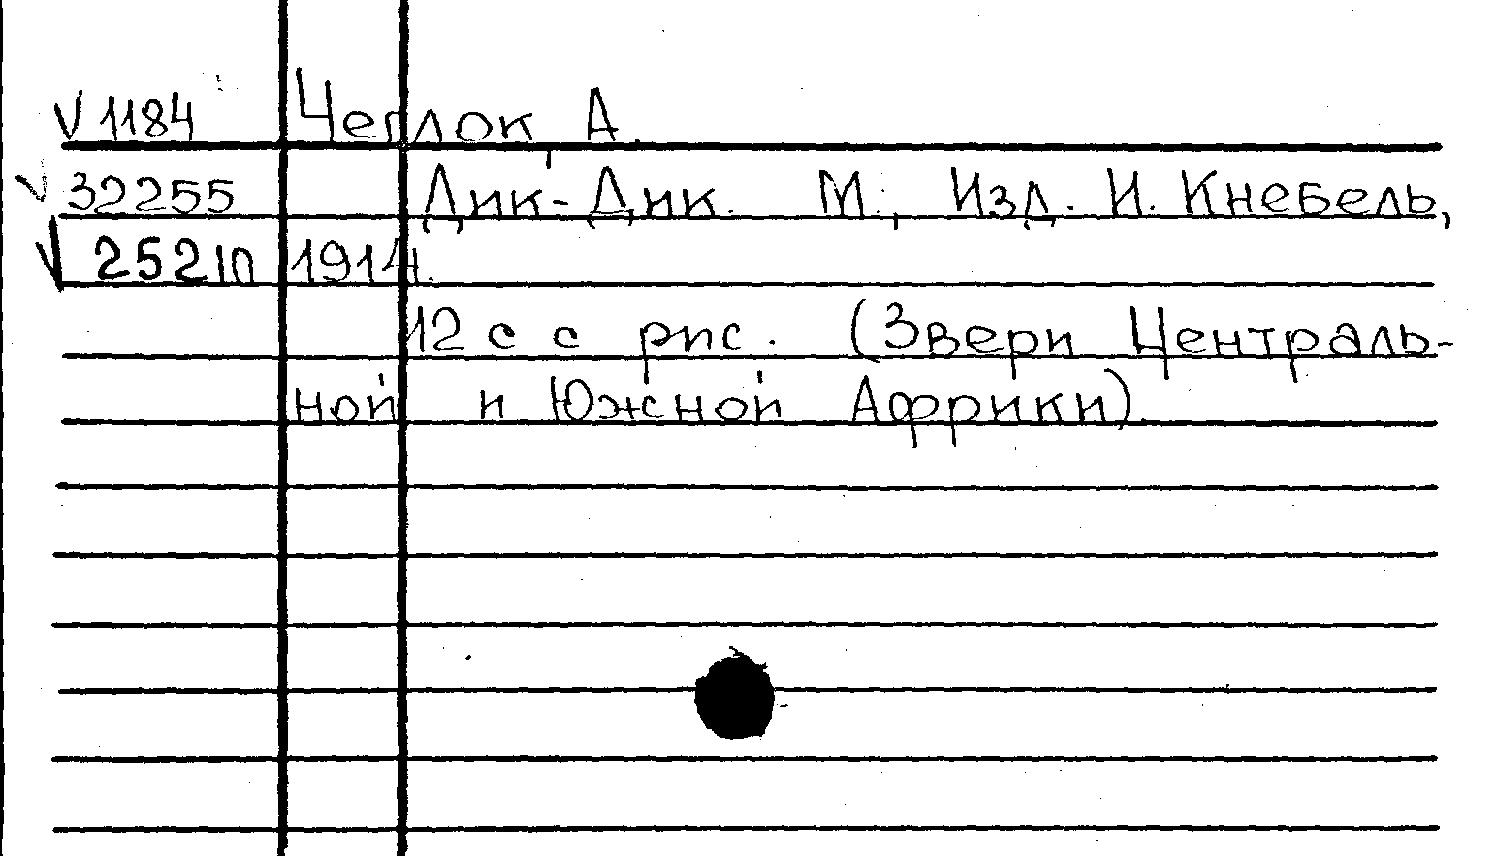 V 1184 Чеглок, А.
V 32255 Дик-Дик. М., Изд. И. Кнебель,
V 25210 1914.
12 с с рис. (Звери Централь-
ной и Южной Африки).